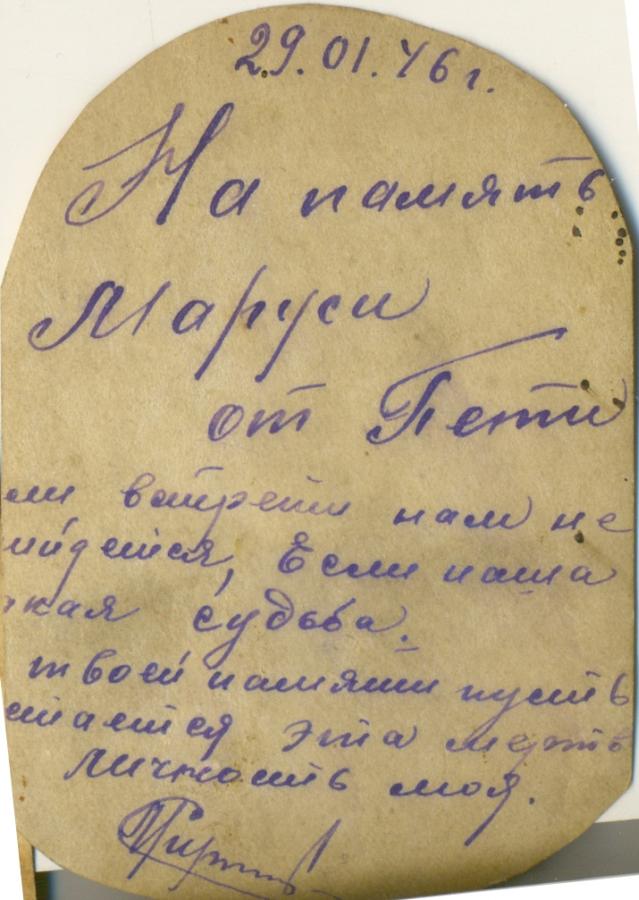 29.01.46 г.
На память
Маруси
от Пети
ли встрети нам не
идется, Если наша
кая судьба.
твоей памяти пусть
стается эта мертв
личность моя.